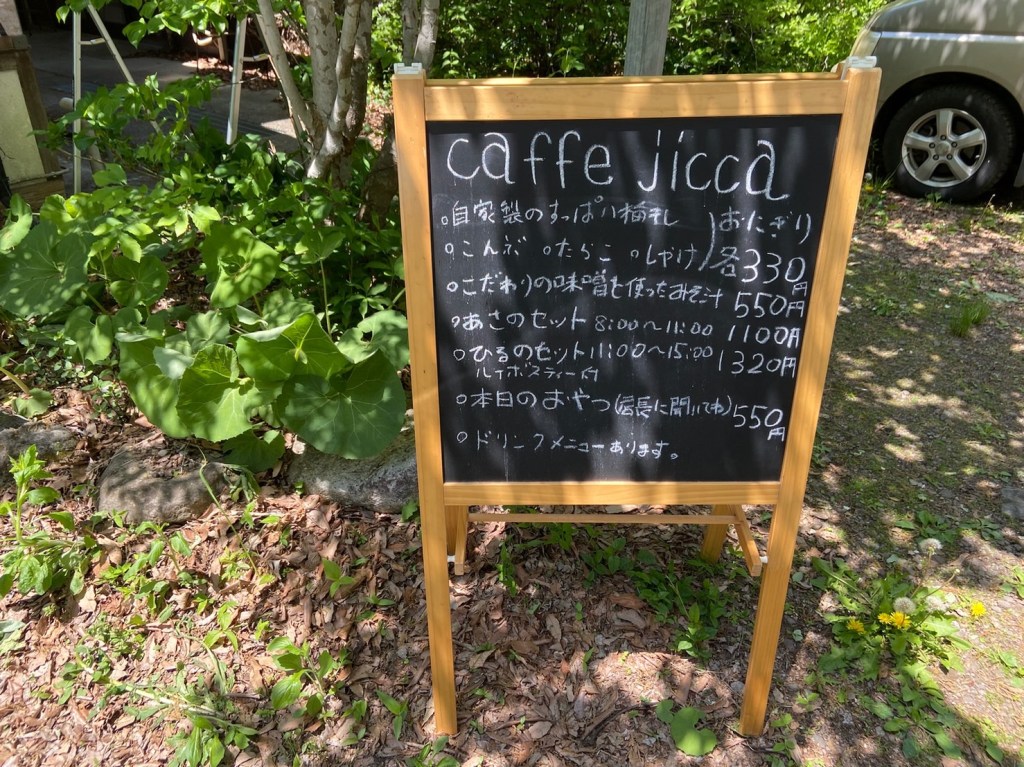 caffe jicca
○自家製のすっぱい梅干し
○こんぶ ○たらこ ○しゃけ
) おにぎり
各330円
○こだわりの味噌を使ったみそ汁 550円
○あさのセット 8:00〜11:00 1100円
○ひるのセット 11:00〜15:00 1320円
ルイボスティー付
○本日のおやつ (店長に聞いてね) 550円
○ドリンクメニューあります。